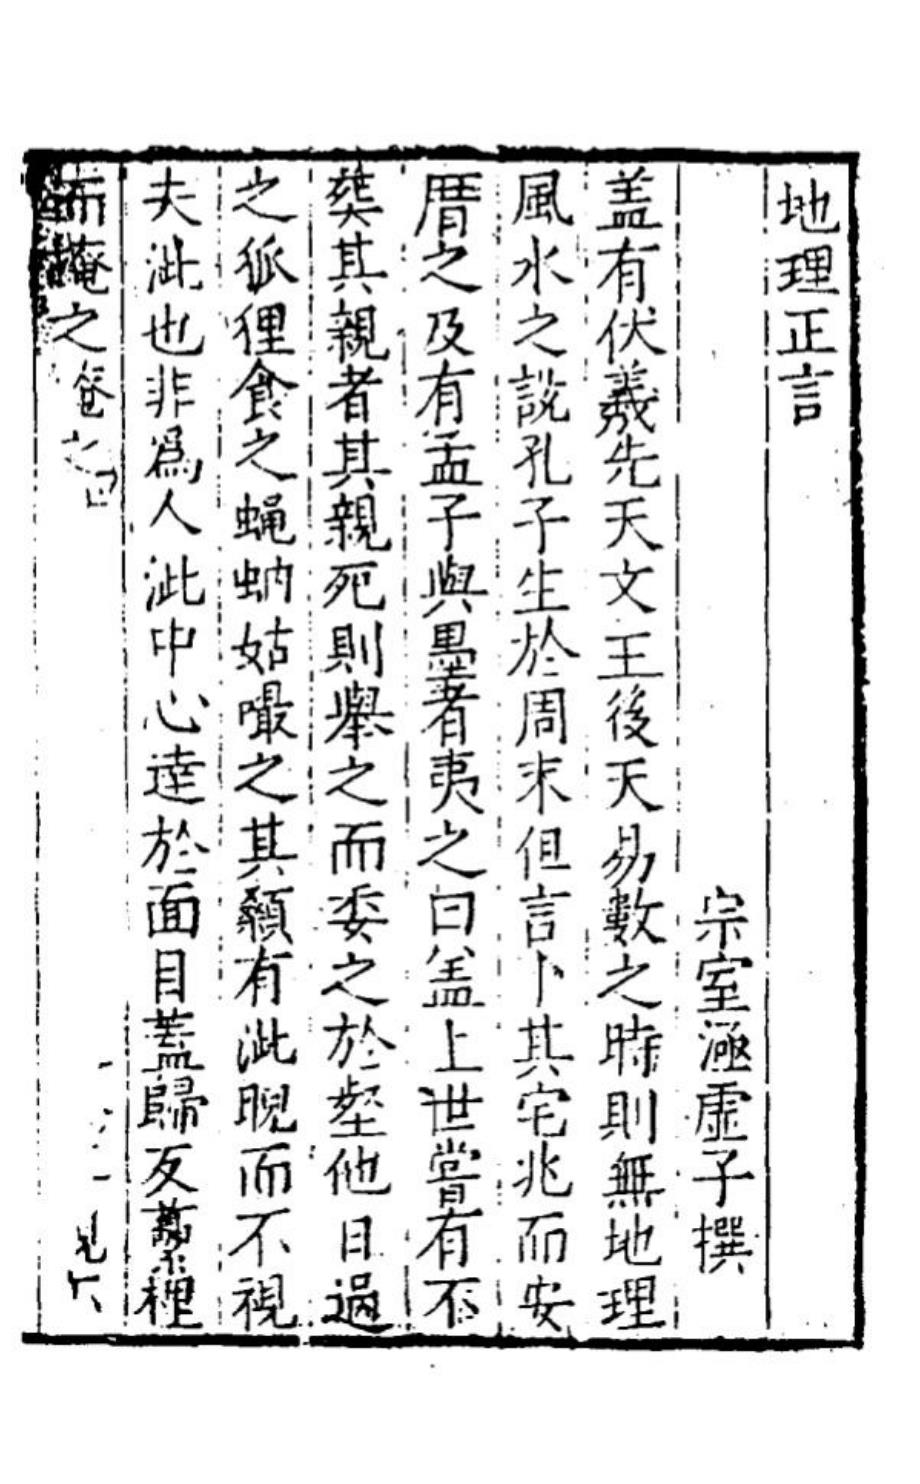 地理正言
宗室涵虛子撰
盖有伏羲先天文王後天易數之時則無地理
風水之說孔子生於周末但言卜其宅兆而安
厝之及有孟子與墨者夷之曰盖上世嘗有不
葬其親者其親死則舉之而委之於壑他日過
之狐狸食之蝇蚋姑嘬之其顙有泚睨而不視
夫泚也非爲人泚中心逹於面目蓋歸反虆梩
而掩之